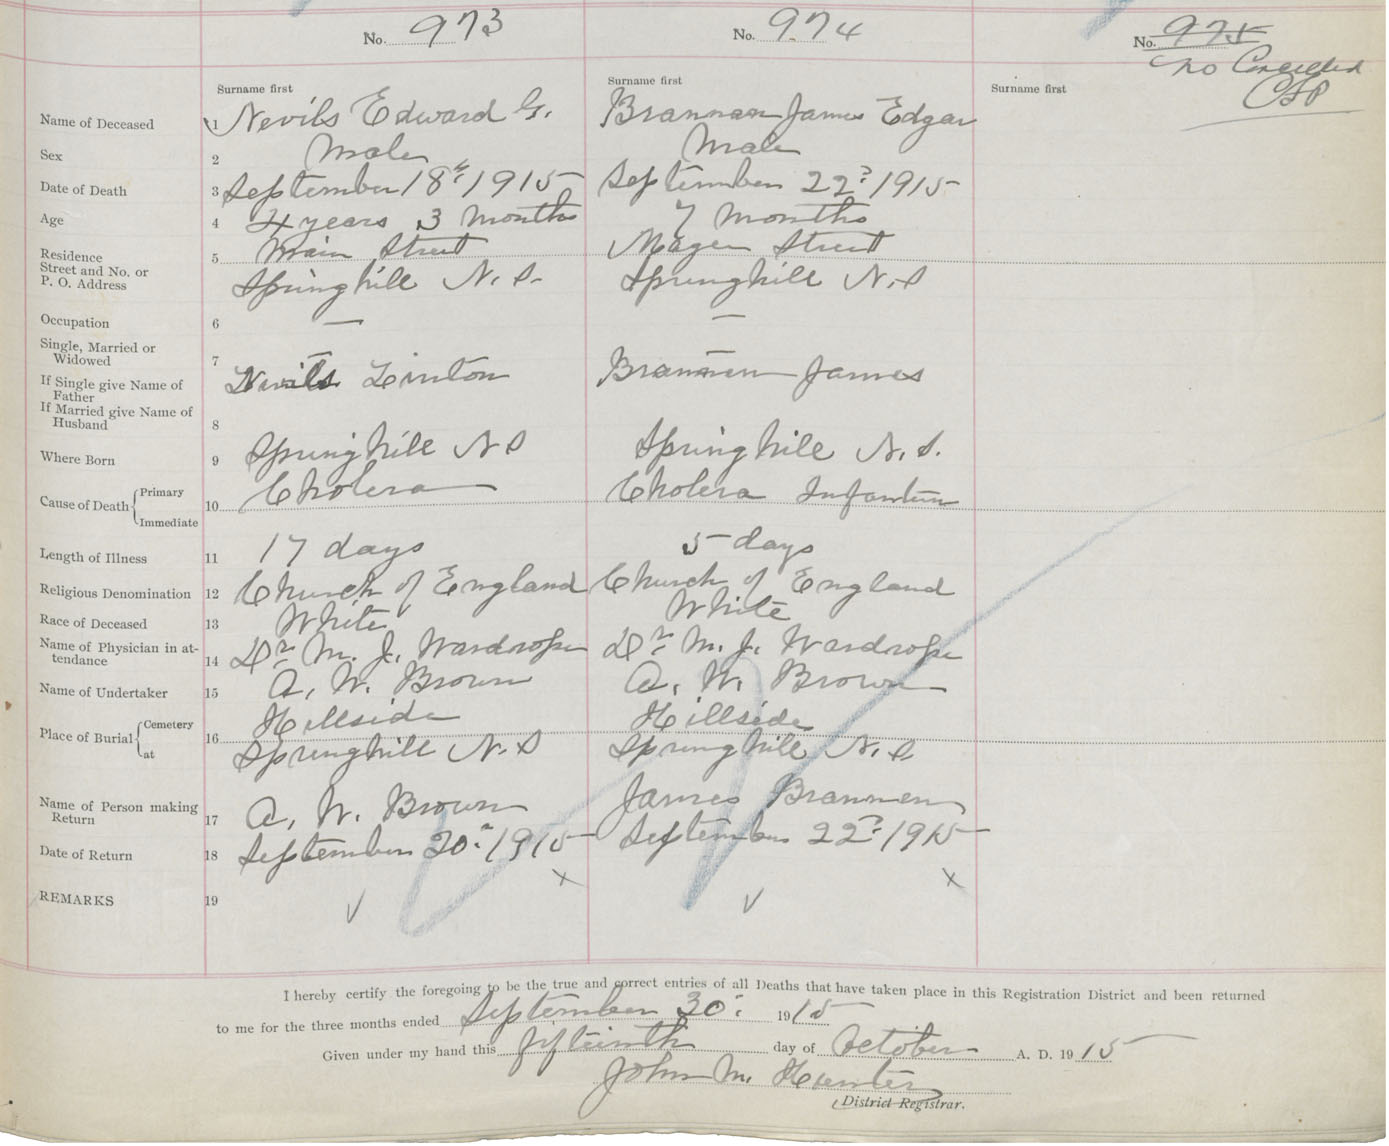 No. 973 No. 974 No. 975
No Cancelled
Surname first Surname first Surname first
Name of Deceased 1 Nevils Edward G. Brannan James Edgar
Sex 2 Male Male
Date of Death 3 September 18th 1915 September 22nd 1915
Age 4 4 years 3 Months 7 Months
Residence 5 Main Street Street
Street and No. or
P. O. Address Springhill N.S. Springhill N.S
Occupation 6 — —
Single, Married or
Widowed 7 — —
If Single give Name of Nevils Linton Brannen James
Father
If Married give Name of
Husband 8
Where Born 9 Springhill N S Springhill N.S.
Cause of Death { Primary Cholera Cholera Infantum
10
Immediate
Length of Illness 11 17 days 5 days
Religious Denomination 12 Church of England Church of England
Race of Deceased 13 White White
Name of Physician in at-
tendance 14 Dr M. J. Wardrope Dr M. J. Wardrope
Name of Undertaker 15 A. W. Brown A. W. Brown
Place of Burial { Cemetery Hillside Hillside
16
at Springhill N.S Springhill N.S.
Name of Person making
Return 17 A. W. Brown James Brannen
Date of Return 18 September 20th 1915 September 22nd 1915
x x
REMARKS 19 ✓ ✓
I hereby certify the foregoing to be the true and correct entries of all Deaths that have taken place in this Registration District and been returned
to me for the three months ended September 30th 1915
Given under my hand this fifteenth day of October A. D. 1915
John M. Hunter
District Registrar.